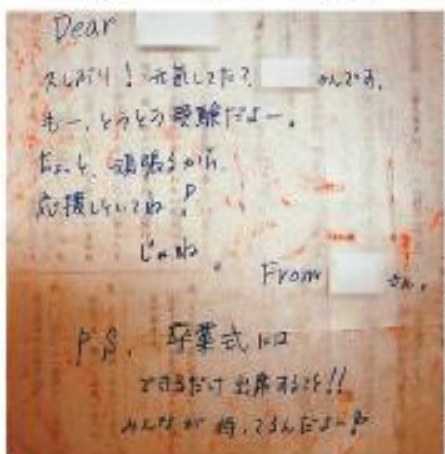 Dear
久しぶり!元気してた?
もー、とうとう受験だよー。
ちょっと、頑張るから
応援していてね!
じゃね。
From
P.S. 卒業式には
できるだけ出席すること!!
みんなが待ってるんだよー!